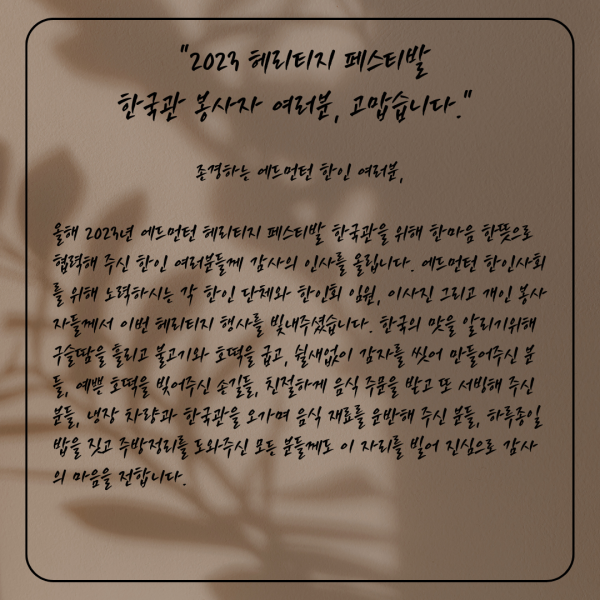 "2023 헤리티지 페스티발
한국관 봉사자 여러분, 고맙습니다."
존경하는 에드먼턴 한인 여러분,
올해 2023년 에드먼턴 헤리티지 페스티발 한국관을 위해 한마음 한뜻으로
협력해 주신 한인 여러분들께 감사의 인사를 올립니다. 에드먼턴 한인사회
를 위해 노력하시는 각 한인 단체와 한인회 임원, 이사진 그리고 개인 봉사
자들께서 이번 헤리티지 행사를 빛내주셨습니다. 한국의 맛을 알리기위해
구슬땀을 흘리고 불고기와 호떡을 굽고, 쉴새없이 감자를 씻어 만들어주신 분
들, 예쁜 호떡을 빚어주신 손길들, 친절하게 음식 주문을 받고 또 서빙해 주신
분들, 냉장 차량과 한국관을 오가며 음식 재료를 운반해 주신 분들, 하루종일
밥을 짓고 주방정리를 도와주신 모든 분들께도 이 자리를 빌어 진심으로 감사
의 마음을 전합니다.